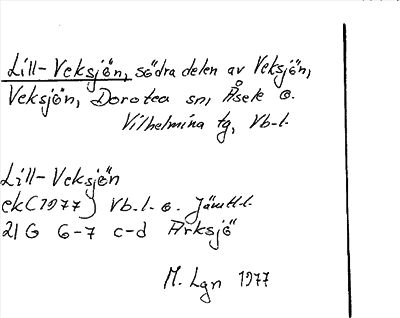 Lill-Veksjön, södra delen av Veksjön,
Veksjön, Dorotea sn, Åsele o.
Vilhelmina tg, Vb-l.
Lill-Veksjön
ek(1977) Vb.l. o. Jämtl.l.
21G 6-7 c-d Arksjö
M. Lgn 1977